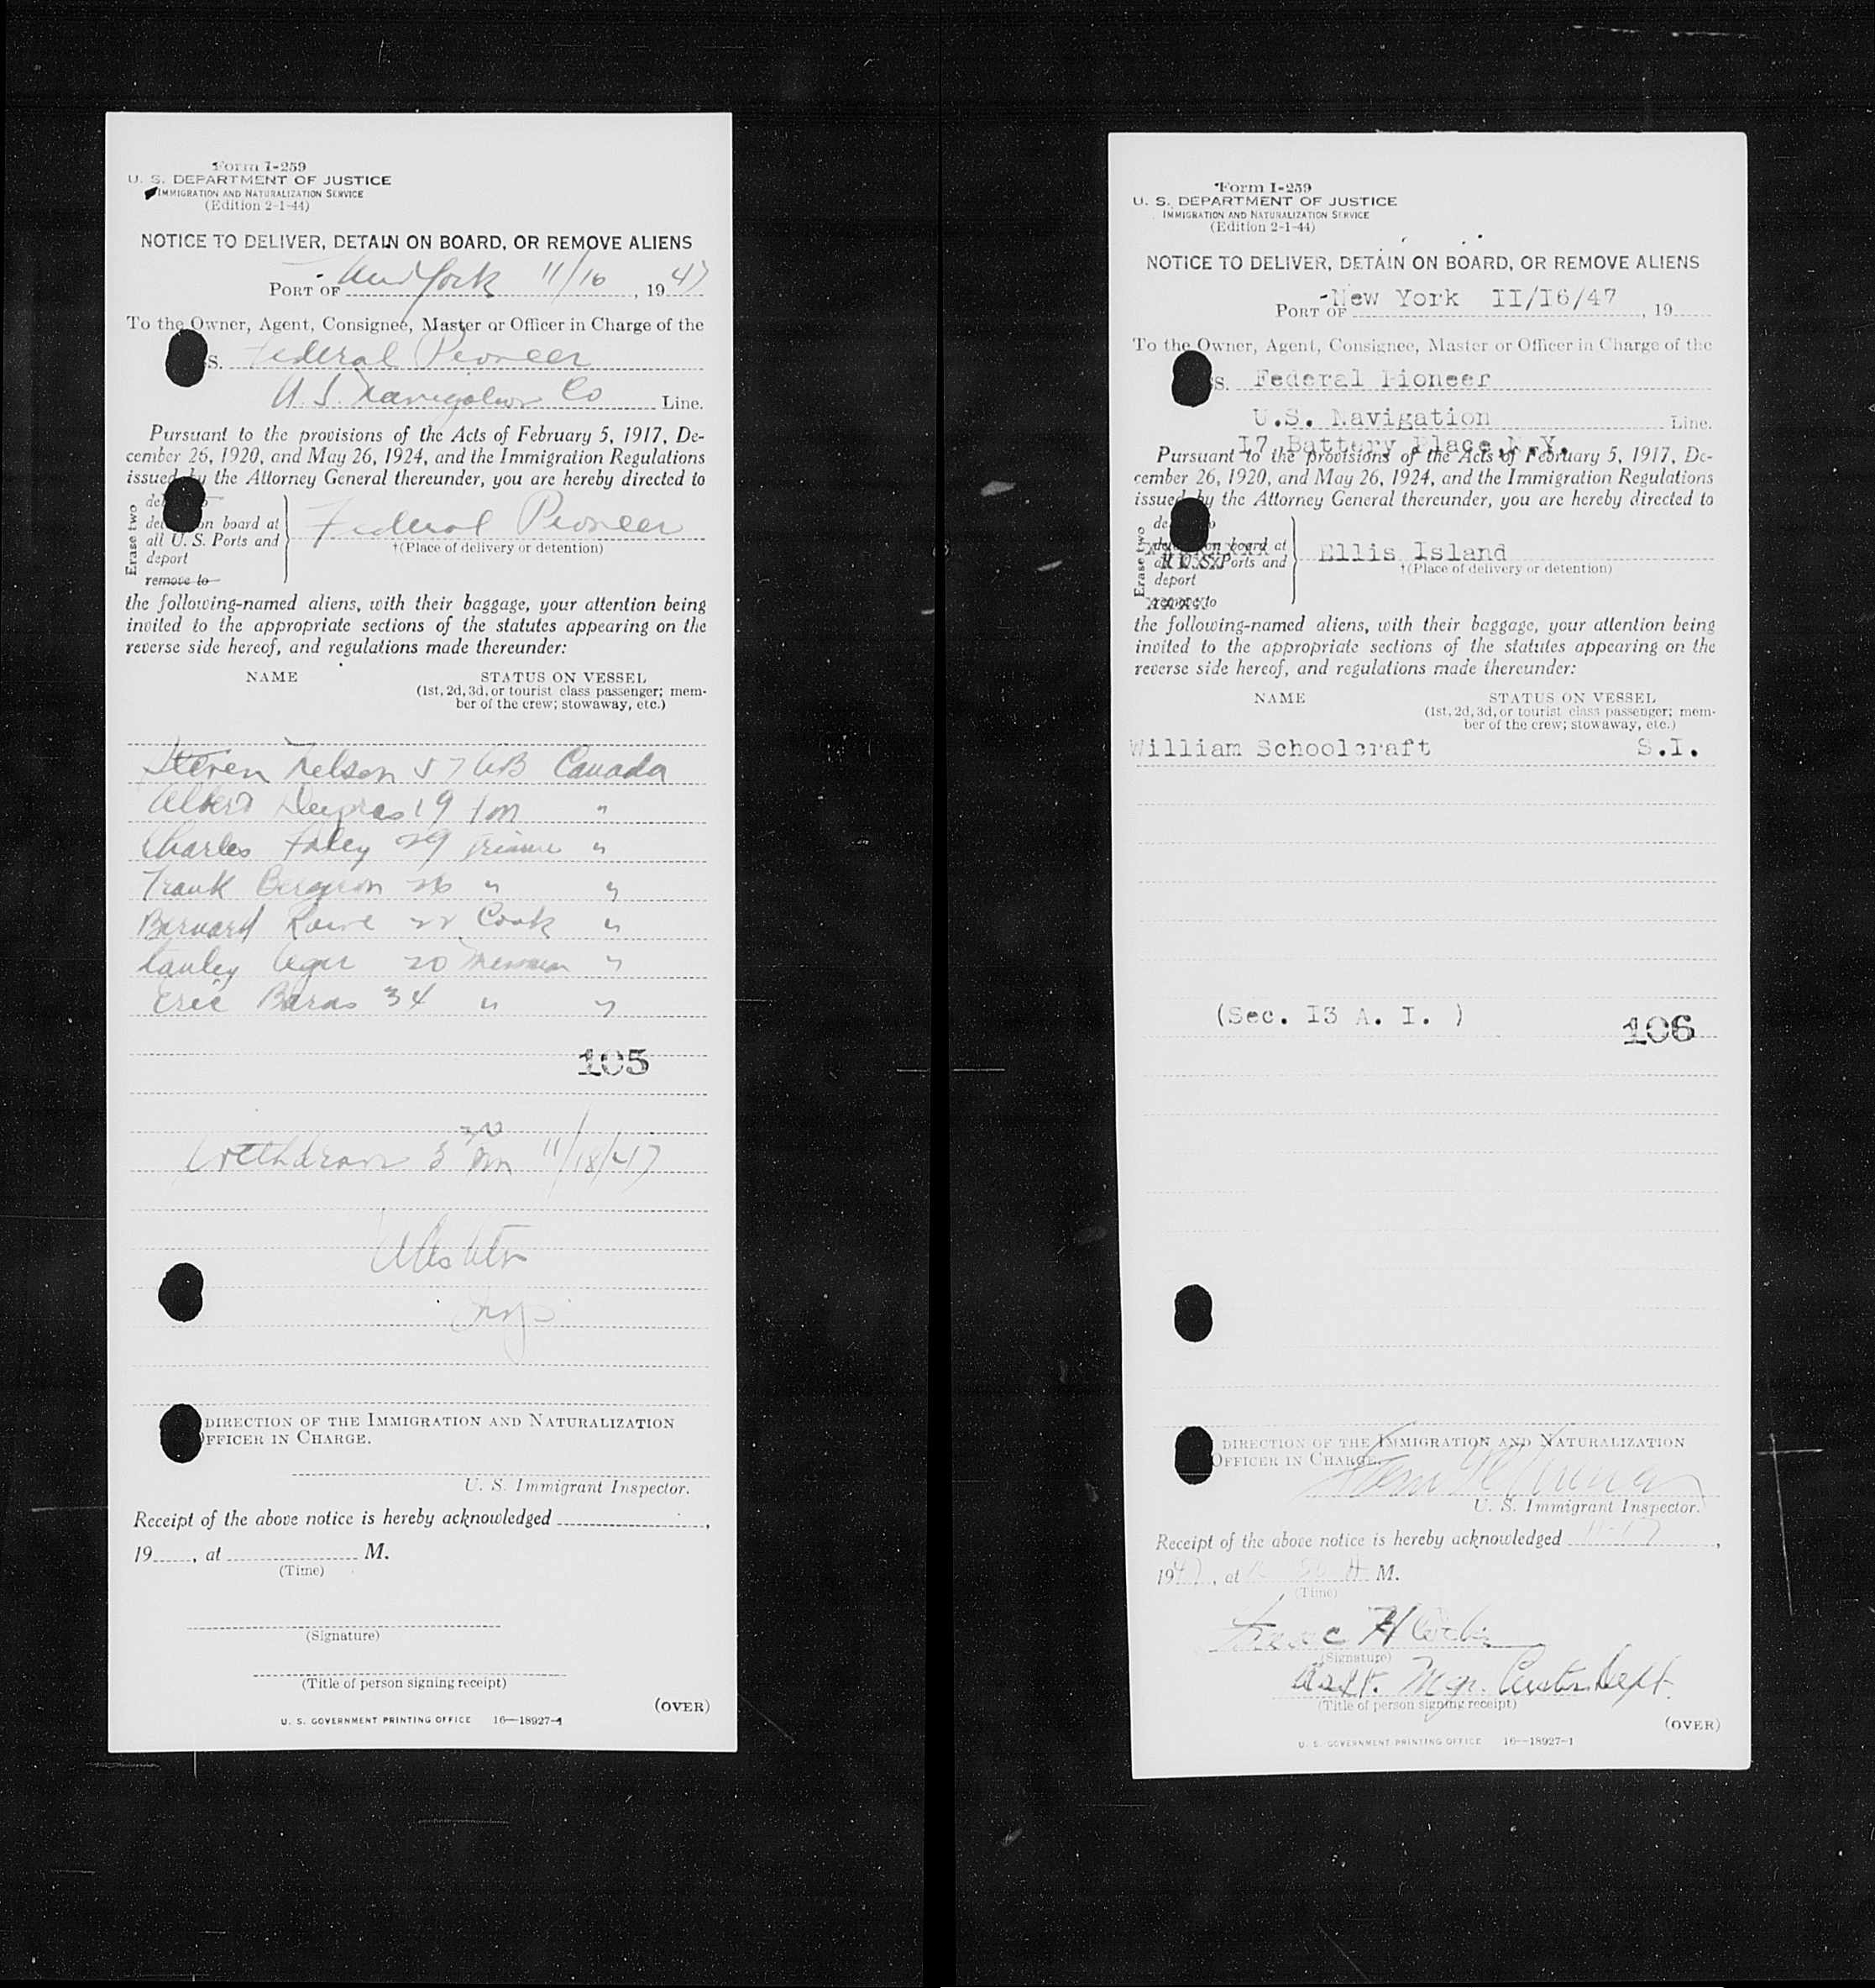 Form I-259
U. S. DEPARTMENT OF JUSTICE
IMMIGRATION AND NATURALIZATION SERVICE
(Edition 2-1-44)
NOTICE TO DELIVER, DETAIN ON BOARD, OR REMOVE ALIENS
PORT OF New York 11/16, 1947
To the Owner, Agent, Consignee, Master or Officer in Charge of the
S. Federal Pioneer
U.S. Navigation Co Line.
Pursuant to the provisions of the Acts of February 5, 1917, De-
cember 26, 1920, and May 26, 1924, and the Immigration Regulations
issued by the Attorney General thereunder, you are hereby directed to
Erase two
on board at
all U. S. Ports and
deport
remove to
Federal Pioneer
†(Place of delivery or detention)
the following-named aliens, with their baggage, your attention being
invited to the appropriate sections of the statutes appearing on the
reverse side hereof, and regulations made thereunder:
NAME STATUS ON VESSEL
(1st, 2d, 3d, or tourist class passenger; mem-
ber of the crew; stowaway, etc.)
Steven Nelson 57 AB Canada
Albert 19 "
Charles Foley 29 "
Frank Bergeron 26 " "
Bernard 22 Cook "
20 Messman "
Eric 34 " "
105
Withdrawn 3 30 PM 11/18/47
Insp
DIRECTION OF THE IMMIGRATION AND NATURALIZATION
OFFICER IN CHARGE.
U. S. Immigrant Inspector.
Receipt of the above notice is hereby acknowledged ,
19 , at M.
(Time)
(Signature)
(Title of person signing receipt)
(OVER)
U. S. GOVERNMENT PRINTING OFFICE 16—18927-1
Form I-259
U. S. DEPARTMENT OF JUSTICE
IMMIGRATION AND NATURALIZATION SERVICE
(Edition 2-1-44)
NOTICE TO DELIVER, DETAIN ON BOARD, OR REMOVE ALIENS
PORT OF New York II/I6/47 , 19
To the Owner, Agent, Consignee, Master or Officer in Charge of the
S. Federal Pioneer
U.S. Navigation Line.
I7 Battery Place,N.Y.
Pursuant to the provisions of the Acts of February 5, 1917, De-
cember 26, 1920, and May 26, 1924, and the Immigration Regulations
issued by the Attorney General thereunder, you are hereby directed to
Erase two
on board at
all U. S. Ports and
deport
remove to
Ellis Island
†(Place of delivery or detention)
the following-named aliens, with their baggage, your attention being
invited to the appropriate sections of the statutes appearing on the
reverse side hereof, and regulations made thereunder:
NAME STATUS ON VESSEL
(1st, 2d, 3d, or tourist class passenger; mem-
ber of the crew; stowaway, etc.)
William Schoolcraft S.I.
(Sec. I3 A. I. )
106
DIRECTION OF THE IMMIGRATION AND NATURALIZATION
OFFICER IN CHARGE.
U. S. Immigrant Inspector.
Receipt of the above notice is hereby acknowledged 11-17 ,
1947, at A M.
(Time)
H
(Signature)
Asst. Mgr. Dept.
(Title of person signing receipt)
(OVER)
U. S. GOVERNMENT PRINTING OFFICE 16—18927-1